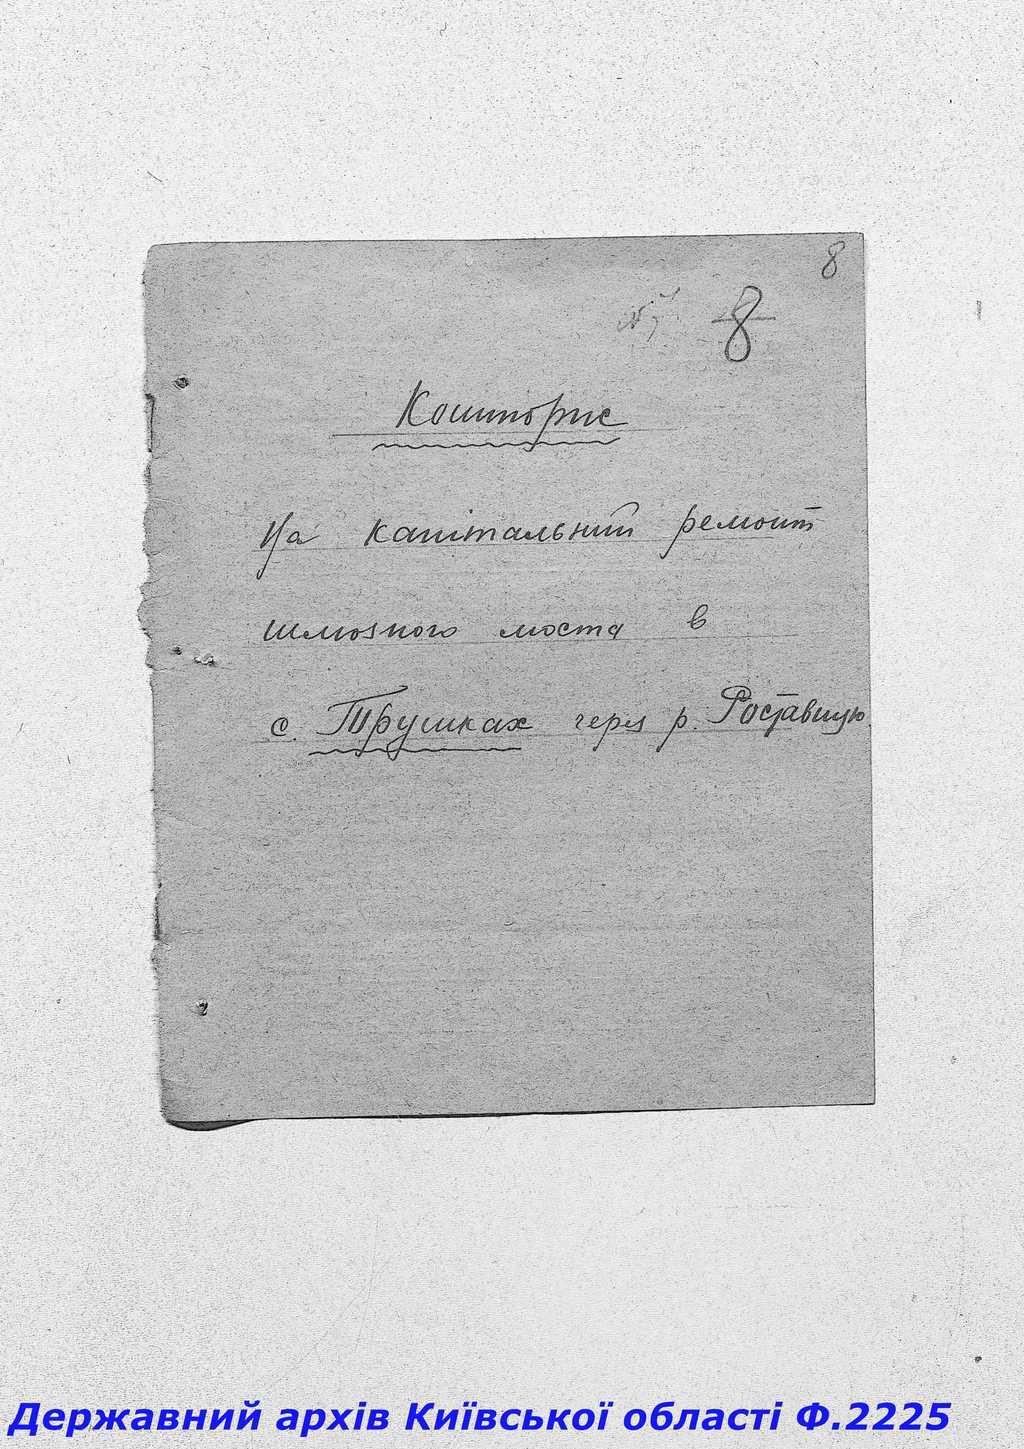 8
8
Кошторис
На капітальний ремонт
шлюзного моста в
с. Трушках через р. Роставицю.
Державний архів Київської області Ф.2225